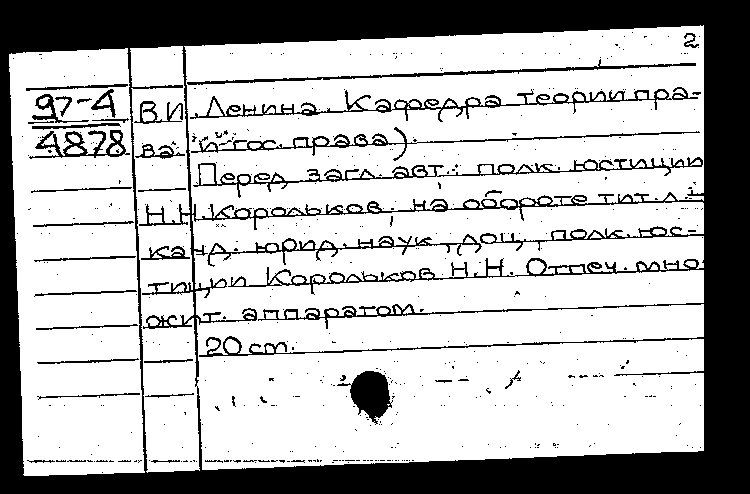 2
97-4
4878
В.И. Ленина. Кафедра теории пра-
ва и гос. права).
Перед загл. авт.: полк. юстиции
Н.Н. Корольков, на обороте тит. л.:
канд. юрид. наук, доц., полк. юс-
тиции Корольков Н.Н. Отпеч. мно-
жит. аппаратом.
20 cm.